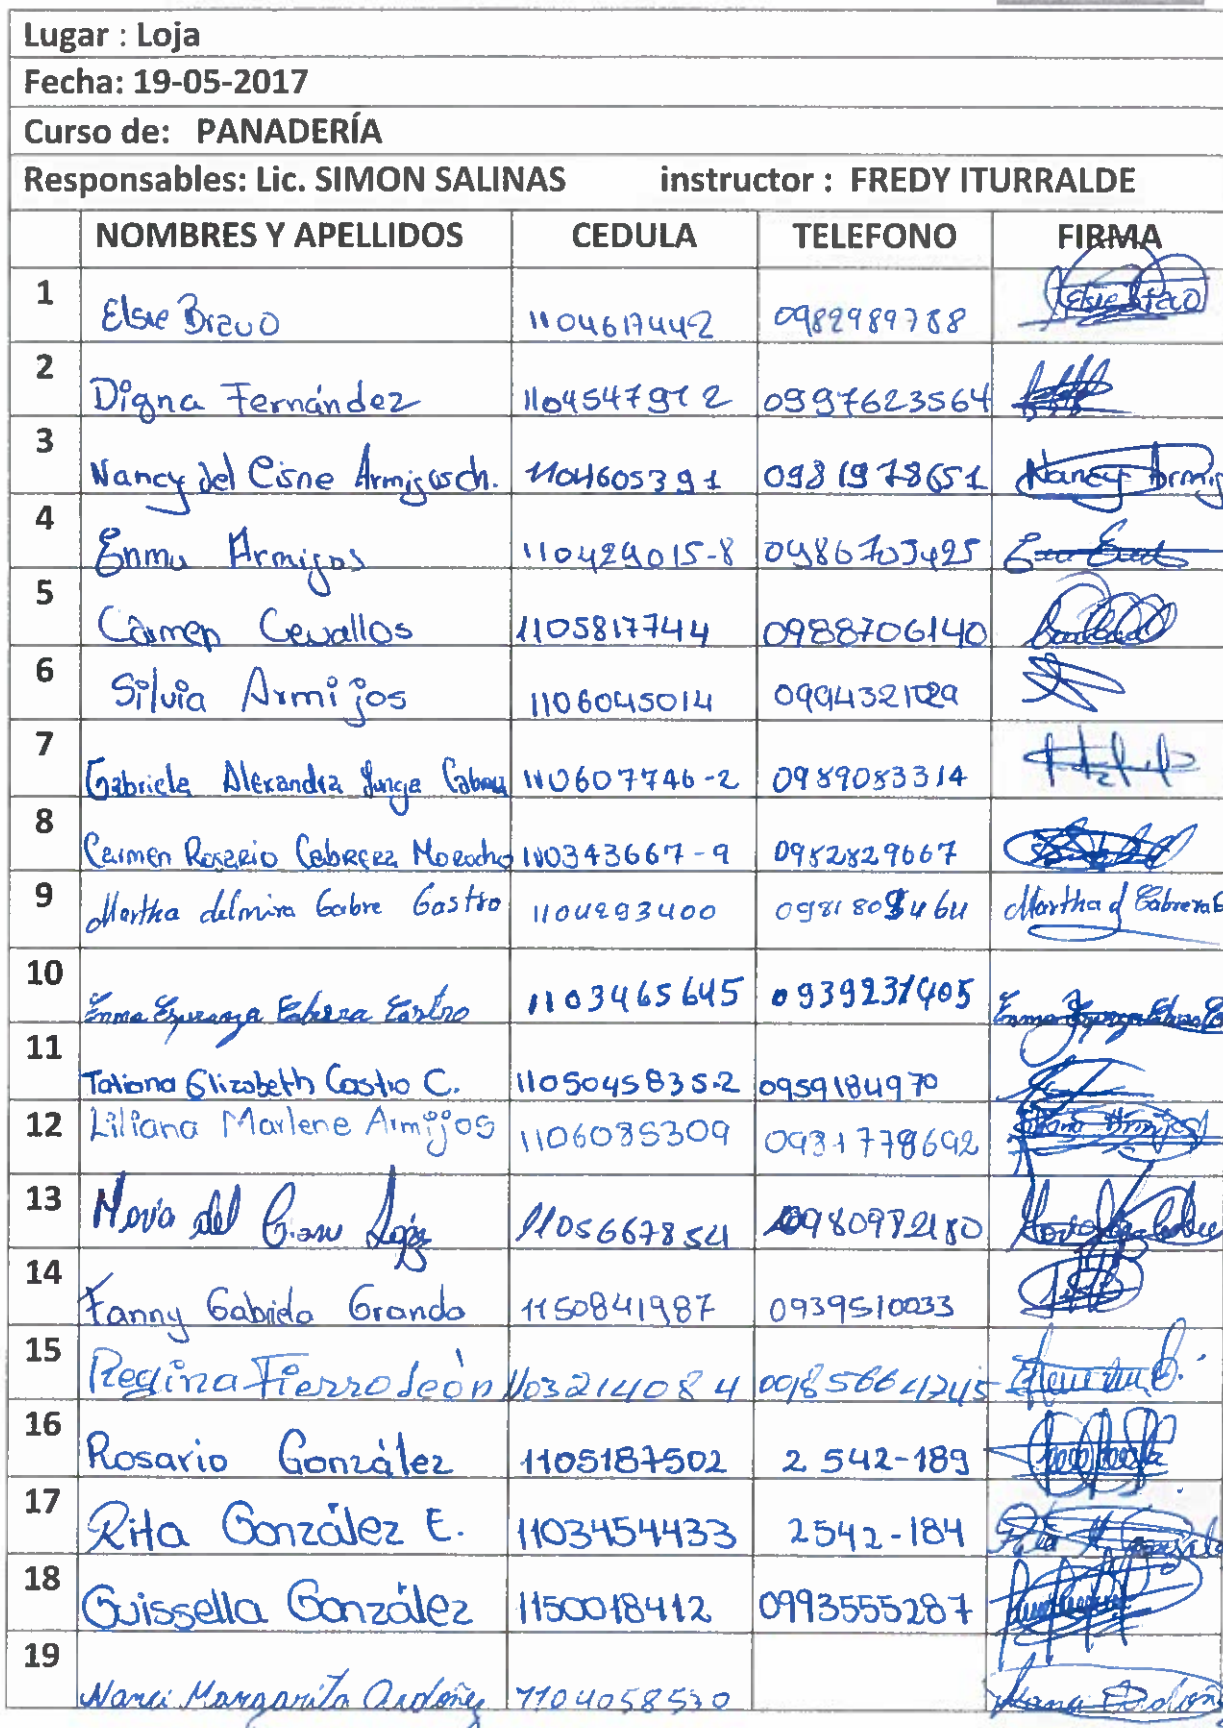 Lugar : Loja
Fecha: 19-05-2017
Curso de: PANADERÍA
Responsables: Lic. SIMON SALINAS instructor : FREDY ITURRALDE
NOMBRES Y APELLIDOS CEDULA TELEFONO FIRMA
1 Elsie Bravo 1104617442 0982989788 Elsie Bravo
2 Digna Fernández 1104547912 0997623564
3 Nancy del Cisne Armijos ch. 1104605391 0981978651 Nancy Armij
4 Enma Armijos 110429015-8 0986703425
5 Carmen Cevallos 1105817744 0988706140
6 Silvia Armijos 1106045014 0994321029
7 Gabriela Alexandra 110607746-2 0989083314
8 Carmen Rosario Cabrera Morocho 110343667-9 0982829667
9 Martha delmira Cabre Castro 1104293400 098180 464 Martha d Cabrera C
10 Enma Esperanza Cabrera Castro 1103465645 0939231405 Enma Esperanza
11 Tatiana Elizabeth Castro C. 110504583S-2 0959184970
12 Liliana Marlene Armijos 1106035309 0931778692 Liliana Armijos
13 del López 1105667854 0980972180
14 Fanny Gabriela Granda 1150841987 0939510033
15 Regina Fierro León 1103214084
16 Rosario González 1105187502 2 542-189
17 Rita González E. 1103454433 2542-184 Rita
18 Guissella González 1150018412 0993555287
19 Margarita Ordoñez 1104058530